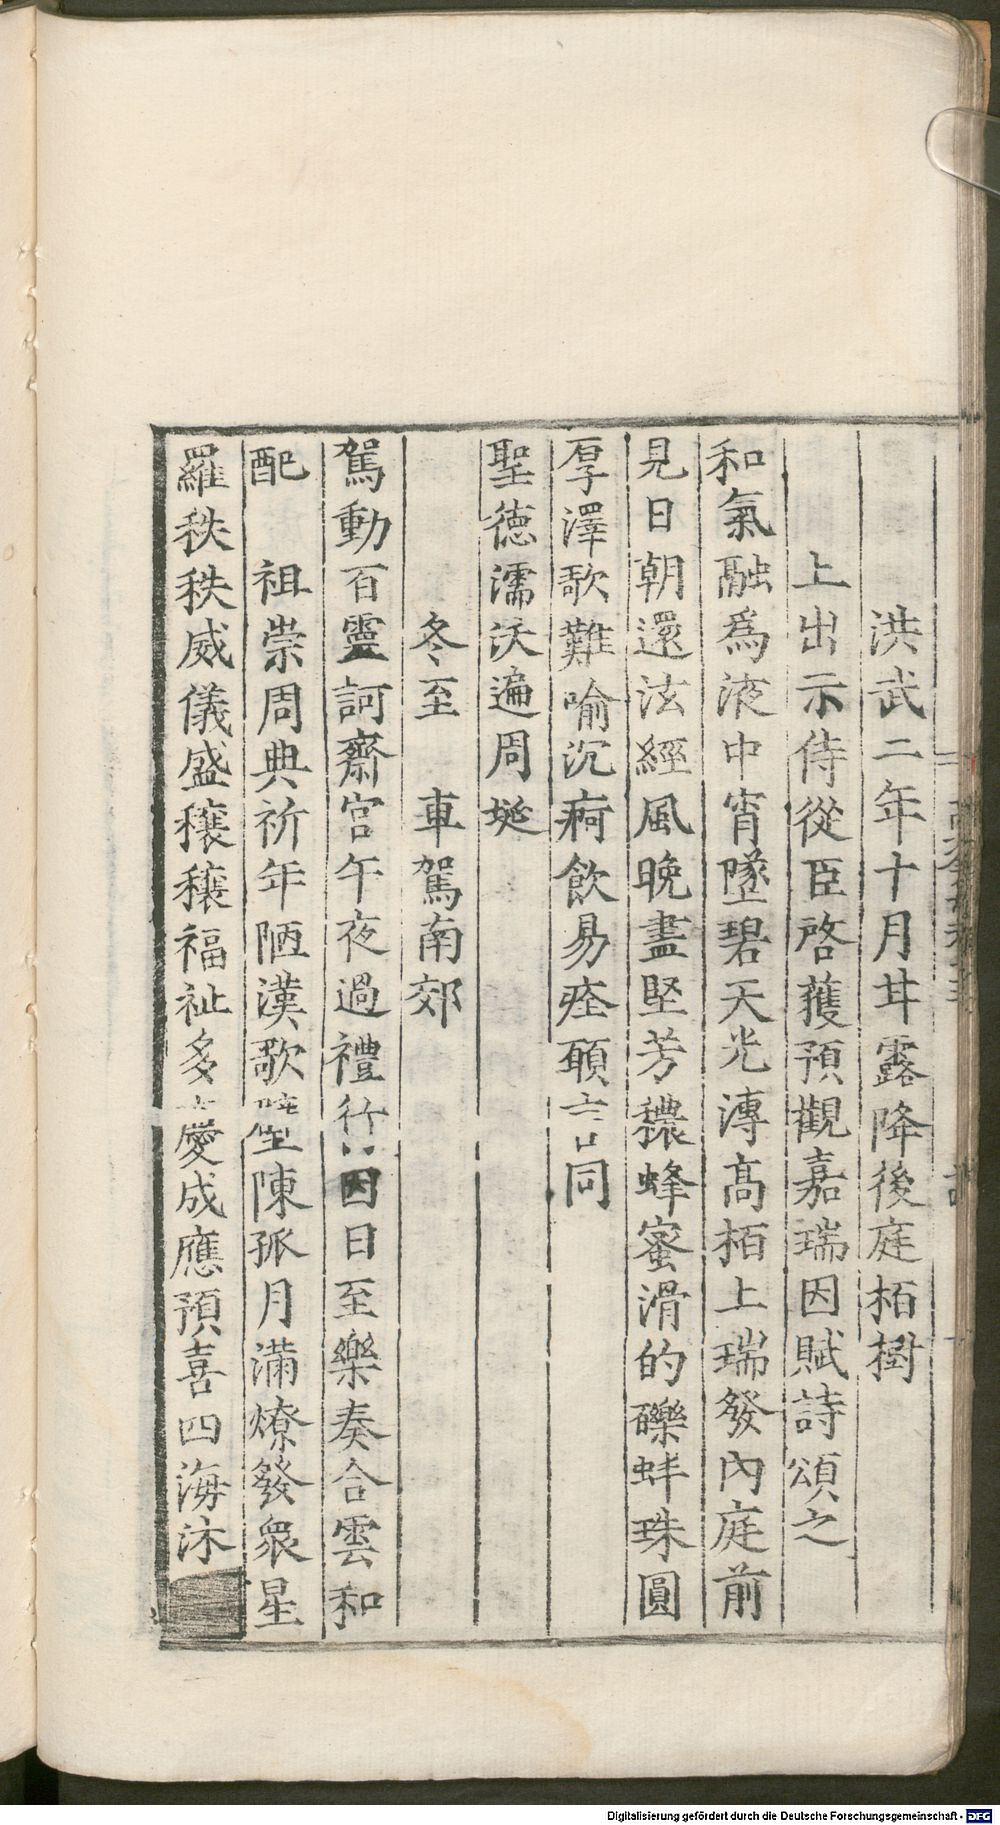 洪武二年十月甘露降後庭栢樹
上出示侍從臣啓蒦預觀嘉瑞因賦詩頌之
和氣融爲液中宵墜碧天光漙髙栢上瑞發內庭前
見日朝還泫經風晚盡堅芳穠蜂蜜滑的礫蚌珠圓
厚澤歌難喻沉痾飲易痊願言同
聖德濡沃遍周埏
冬至　車駕南郊
駕動百靈訶齋宮午夜過禮行因日至樂奏合雲和
配　祖崇周典祈年陋漢歌陳孤月滿燎發衆星
羅秩秩威儀盛穰穰福祉多慶成應預喜四海沐
Digitalisierung gefördert durch die Deutsche Forschungsgemeinschaft - DFG